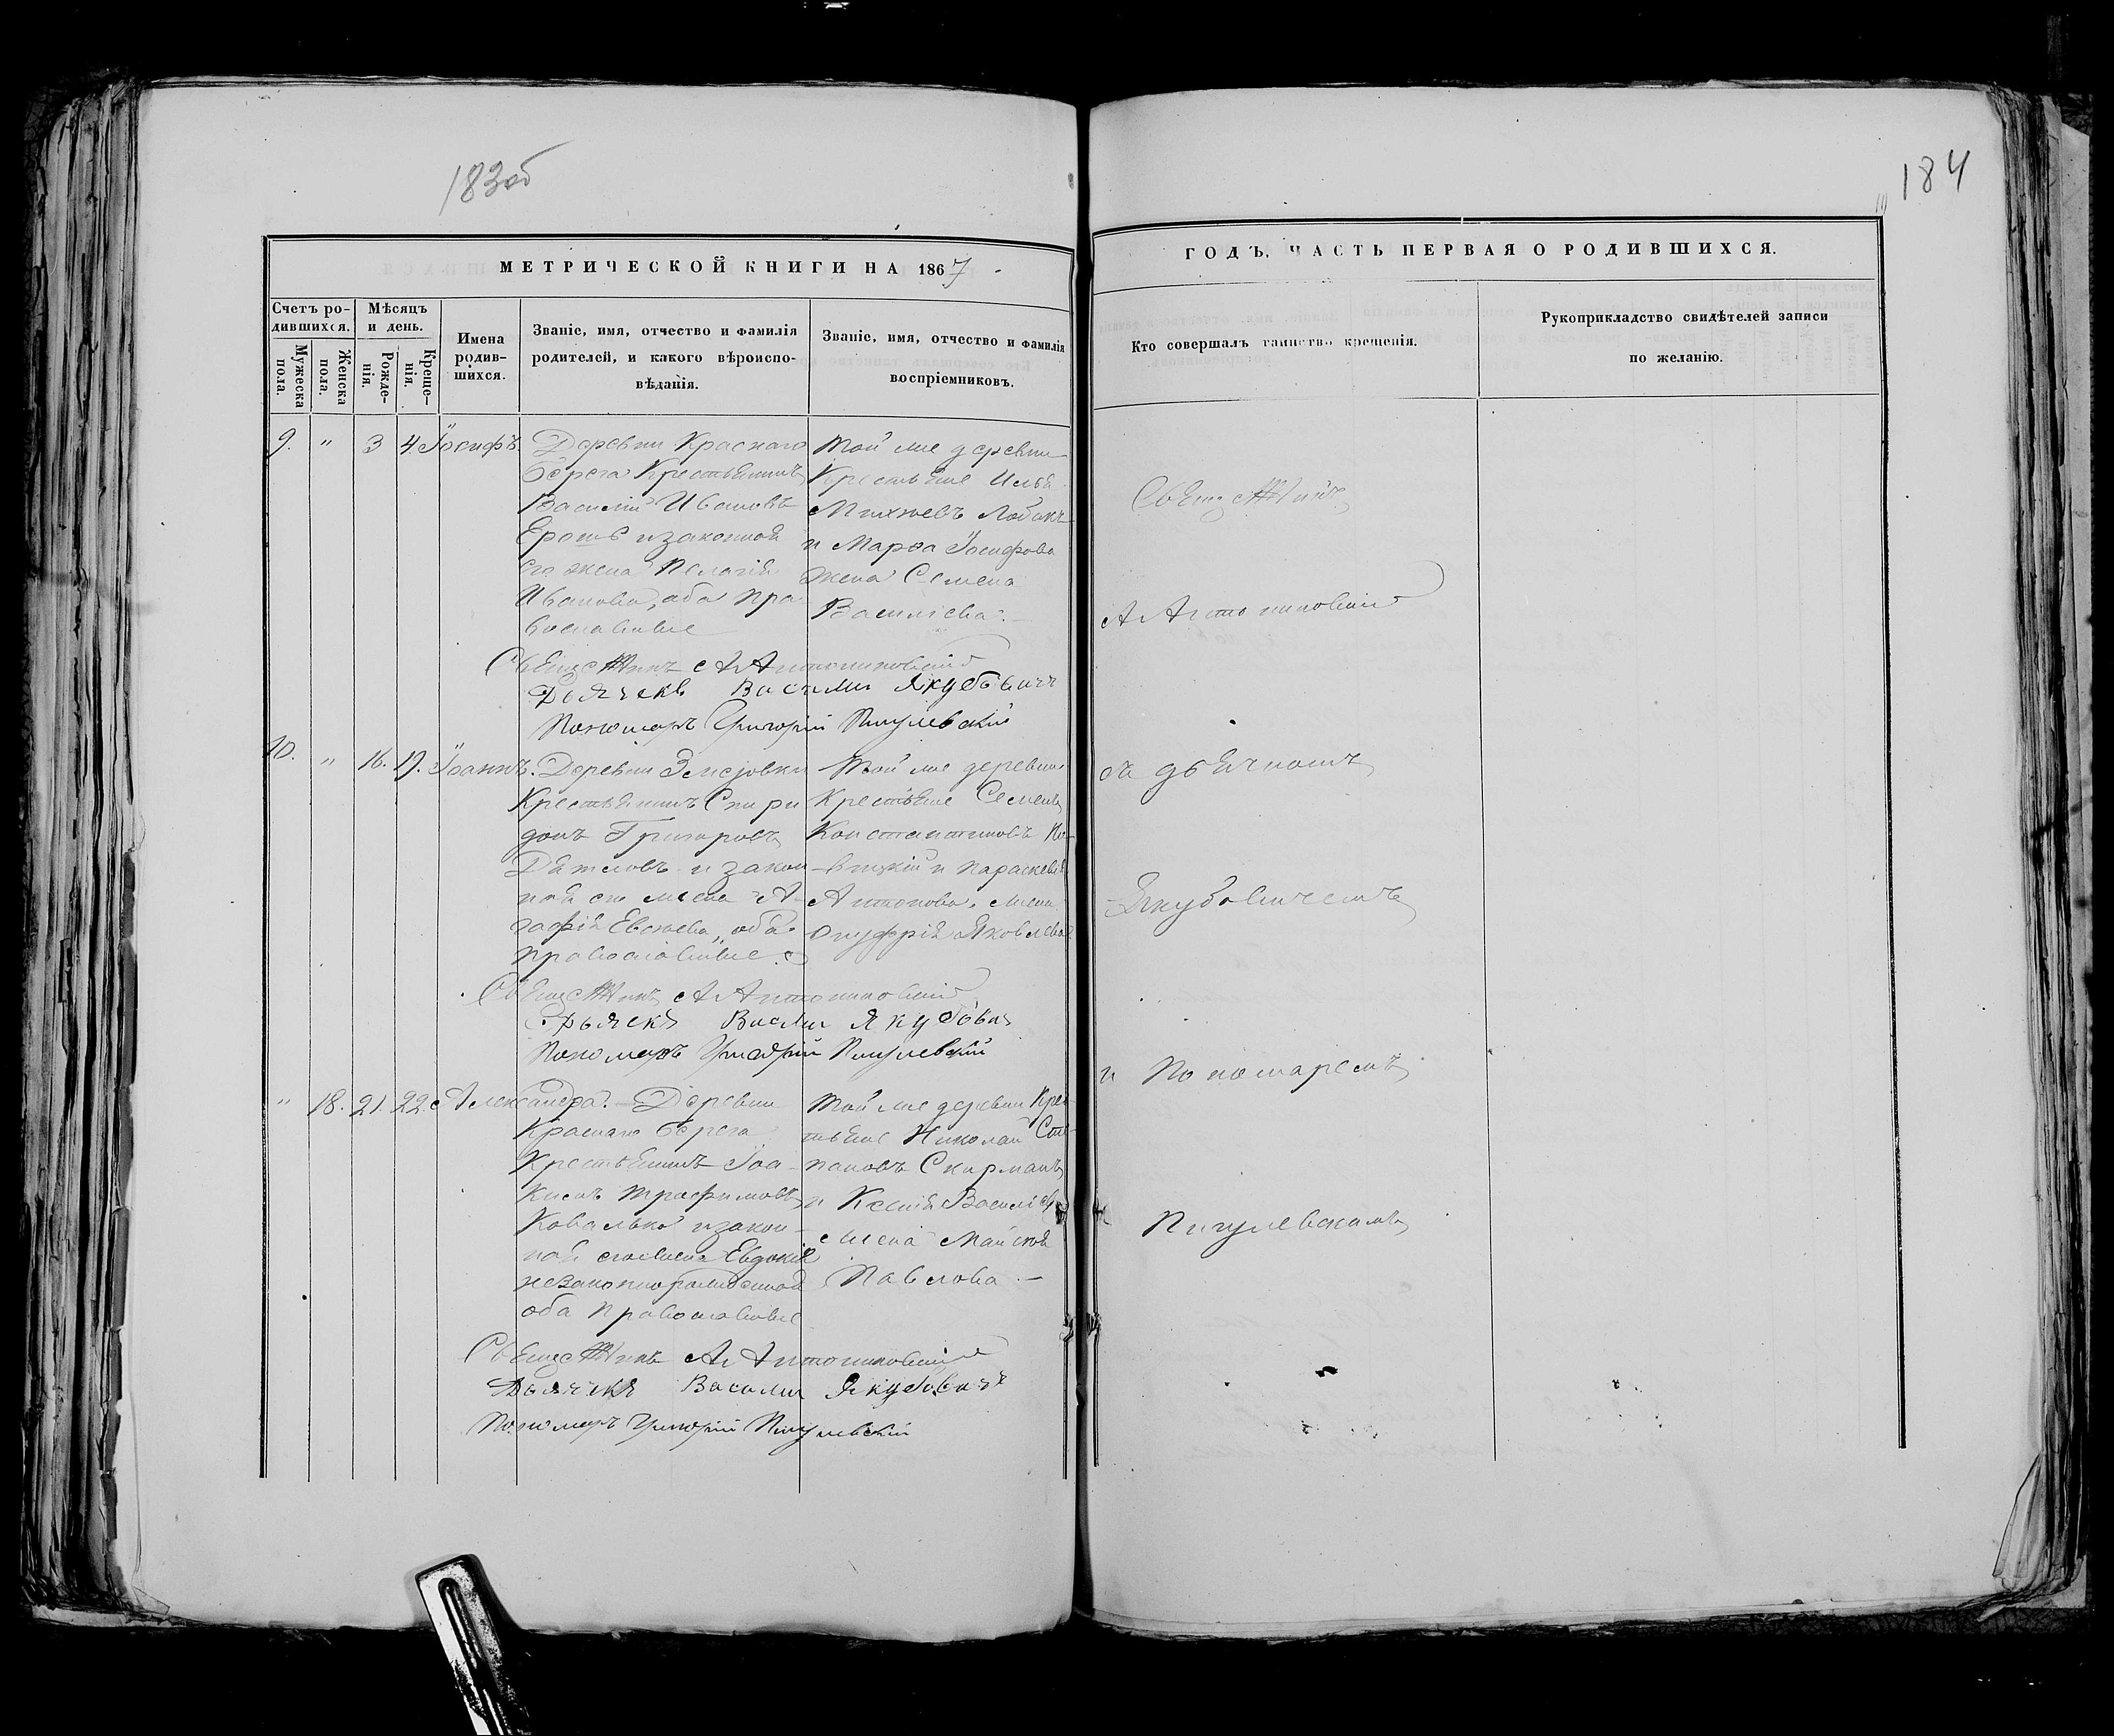 183об
184
МЕТРИЧЕСКОЙ КНИГИ НА 1867
ГОДЪ, ЧАСТЬ ПЕРВАЯ О РОДИВШИХСЯ.
Счетъ ро-
дившихся.
Мужеска
пола.
Женска
пола.
Мѣсяцъ
и день.
Рожде-
нія.
Креще-
нія.
Имена
родив-
шихся.
Званіе, имя, отчество и фамилія
родителей, и какого вѣроиспо-
вѣданія.
Званіе, имя, отчество и фамилія
воспріемниковъ.
Кто совершалъ таинство крещенія.
Рукоприкладство свидѣтелей записи
по желанію.
9. " 3 4 Іосифъ.
Деревни Краснаго
берега Крестьянинъ
Василій Ивановъ
и законной
его жена Пелагія
Иванова, оба пра
вославные
Той же деревни
Крестьяне Илья
Михѣевъ Лобанъ
и Марѳа Іосифова
жена Семена
Васильева.
Священникъ А Антониковскій
Дьячекъ Василий Якубовичъ
Пономарь Григорій Пигулевскій
10. " 16. 19. Іоаннъ.
Деревни
Крестьянинъ Спири
донъ Григоровъ
Дятловъ и закон
ной его жена А-
гафія Евсѣева, оба
православные.
Той же деревни
Крестьяне Семенъ
Константиновъ
и Параскевія
Антонова, жена
Онуфрія Яковлева
Священникъ А Антониковскій
Дьячекъ Василий Якубович
Пономарь Григорій Пигулевскій
" 18. 21. 22. Александра.
Деревни
Краснаго берега
Крестьянинъ Іоа
кимъ Трофимовъ
Ковалько и закон-
ной его жена Евдокія
незаконнорожденная
оба православные
Той же деревни Крес
тьяне Николай Сте
пановъ Скирманъ
и Ксенія Василіева
жена
Павлова. —
Священникъ А Антониковскій
Дьячекъ Василий Якубовичъ
Пономарь Григорій Пигулевскій
Священникъ
А Антониковскій
съ дьячкомъ
Якубовичемъ
и Пономаремъ
Пигулевскимъ